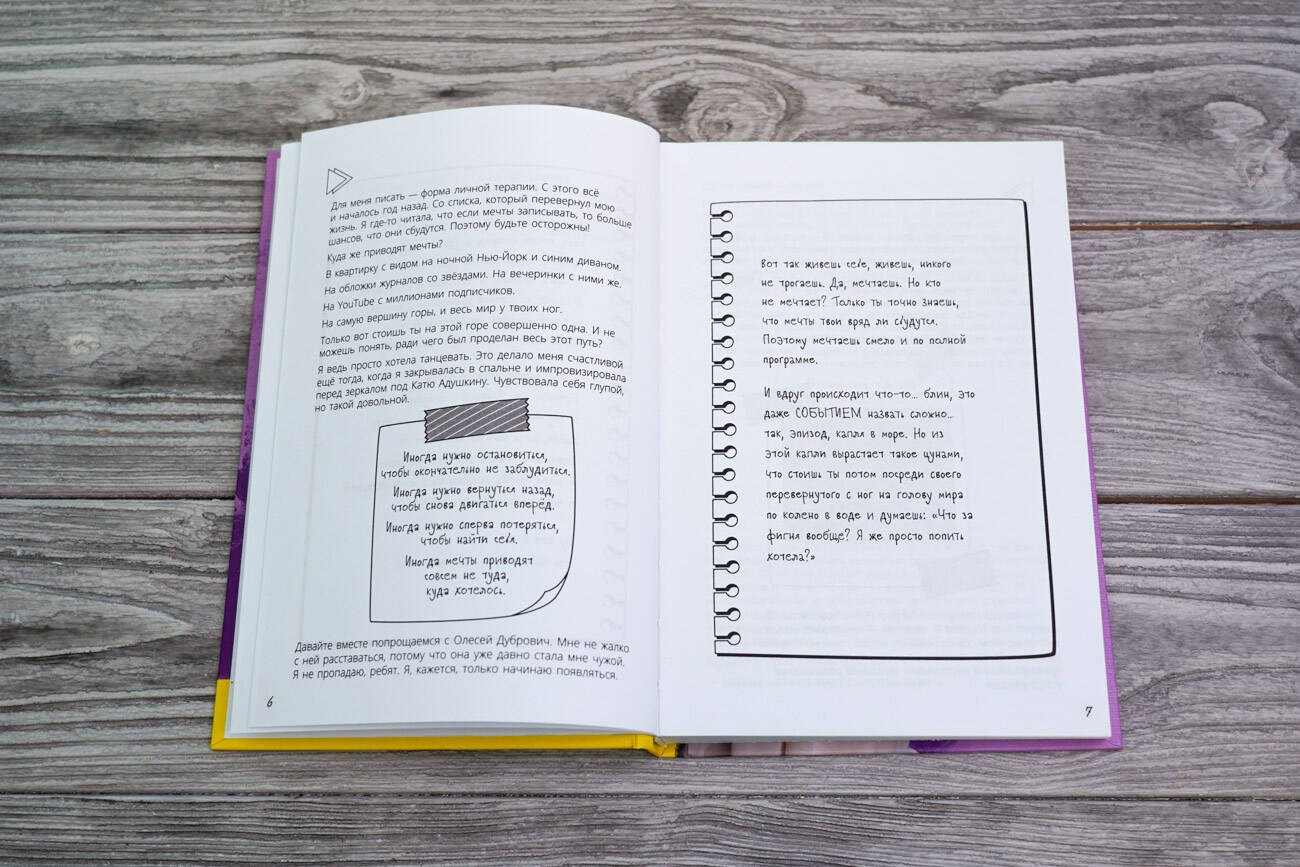 Для меня писать — форма личной терапии. С этого всё
и началось год назад. Со списка, который перевернул мою
жизнь. Я где-то читала, что если мечты записывать, то больше
шансов, что они сбудутся. Поэтому будьте осторожны!
Куда же приводят мечты?
В квартирку с видом на ночной Нью-Йорк и синим диваном.
На обложки журналов со звёздами. На вечеринки с ними же.
На YouTube с миллионами подписчиков.
На самую вершину горы, и весь мир у твоих ног.
Только вот стоишь ты на этой горе совершенно одна. И не
можешь понять, ради чего был проделан весь этот путь?
Я ведь просто хотела танцевать. Это делало меня счастливой
ещё тогда, когда я закрывалась в спальне и импровизировала
перед зеркалом под Катю Адушкину. Чувствовала себя глупой,
но такой довольной.
Иногда нужно остановиться,
чтобы окончательно не заблудиться.
Иногда нужно вернуться назад,
чтобы снова двигаться вперёд.
Иногда нужно сперва потеряться,
чтобы найти себя.
Иногда мечты приводят
совсем не туда,
куда хотелось.
Давайте вместе попрощаемся с Олесей Дубрович. Мне не жалко
с ней расставаться, потому что она уже давно стала мне чужой.
Я не пропадаю, ребят. Я, кажется, только начинаю появляться.
6
Вот так живёшь себе, живёшь, никого
не трогаешь. Да, мечтаешь. Но кто
не мечтает? Только ты точно знаешь,
что мечты твои вряд ли сбудутся.
Поэтому мечтаешь смело и по полной
программе.
И вдруг происходит что-то... блин, это
даже СОБЫТИЕМ назвать сложно...
так, эпизод, капля в море. Но из
этой капли вырастает такое цунами,
что стоишь ты потом посреди своего
перевернутого с ног на голову мира
по колено в воде и думаешь: «Что за
фигня вообще? Я же просто попить
хотела?»
7